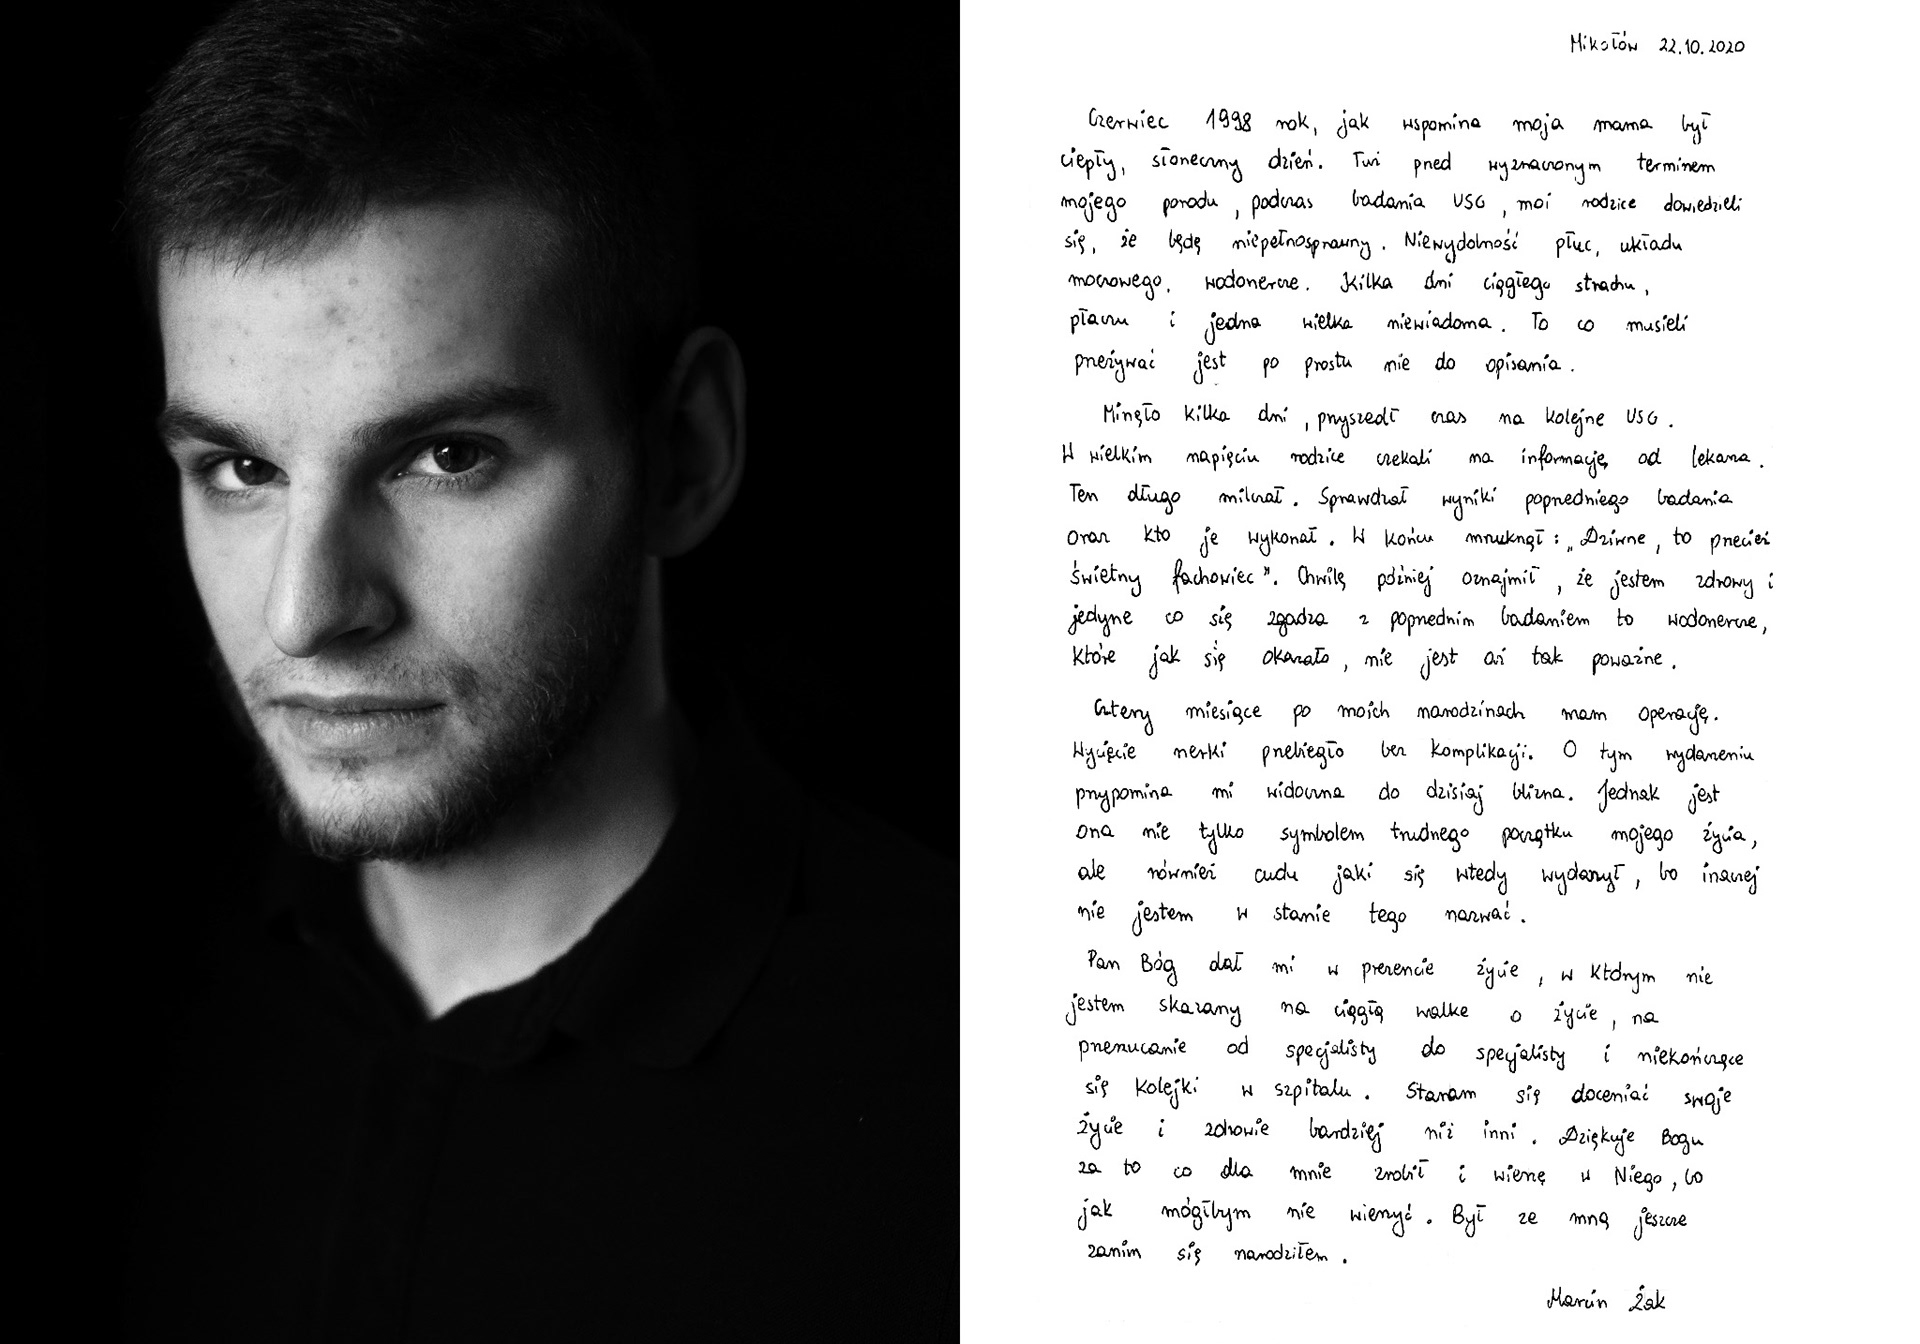 Mikołów 22.10.2020
Czerwiec 1998 rok, jak wspomina moja mama był
ciepły, słoneczny dzień. Tuż przed wyznaczonym terminem
mojego porodu, podczas badania USG, moi rodzice dowiedzieli
się, że będę niepełnosprawny. Niewydolność płuc, układu
moczowego, wodonercze. Kilka dni ciągłego strachu,
płaczu i jedna wielka niewiadoma. To co musieli
przeżywać jest po prostu nie do opisania.
Minęło kilka dni, przyszedł czas na kolejne USG.
W wielkim napięciu rodzice czekali na informację od lekarza.
Ten długo milczał. Sprawdzał wyniki poprzedniego badania
oraz kto je wykonał. W końcu mruknął: „Dziwne, to przecież
świetny fachowiec”. Chwilę później oznajmił, że jestem zdrowy i
jedyne co się zgadza z poprzednim badaniem to wodonercze,
które jak się okazało, nie jest aż tak poważne.
Cztery miesiące po moich narodzinach mam operację.
Wycięcie nerki przebiegło bez komplikacji. O tym wydarzeniu
przypomina mi widoczna do dzisiaj blizna. Jednak jest
ona nie tylko symbolem trudnego początku mojego życia,
ale również cudu jaki się wtedy wydarzył, bo inaczej
nie jestem w stanie tego nazwać.
Pan Bóg dał mi w prezencie życie, w którym nie
jestem skazany na ciągłą walke o życie, na
przerzucanie od specjalisty do specjalisty i niekończące
się kolejki w szpitalu. Staram się doceniać swoje
życie i zdrowie bardziej niż inni. Dziękuje Bogu
za to co dla mnie zrobił i wierzę w Niego, bo
jak mógłbym nie wierzyć. Był ze mną jeszcze
zanim się narodziłem.
Marcin Żak